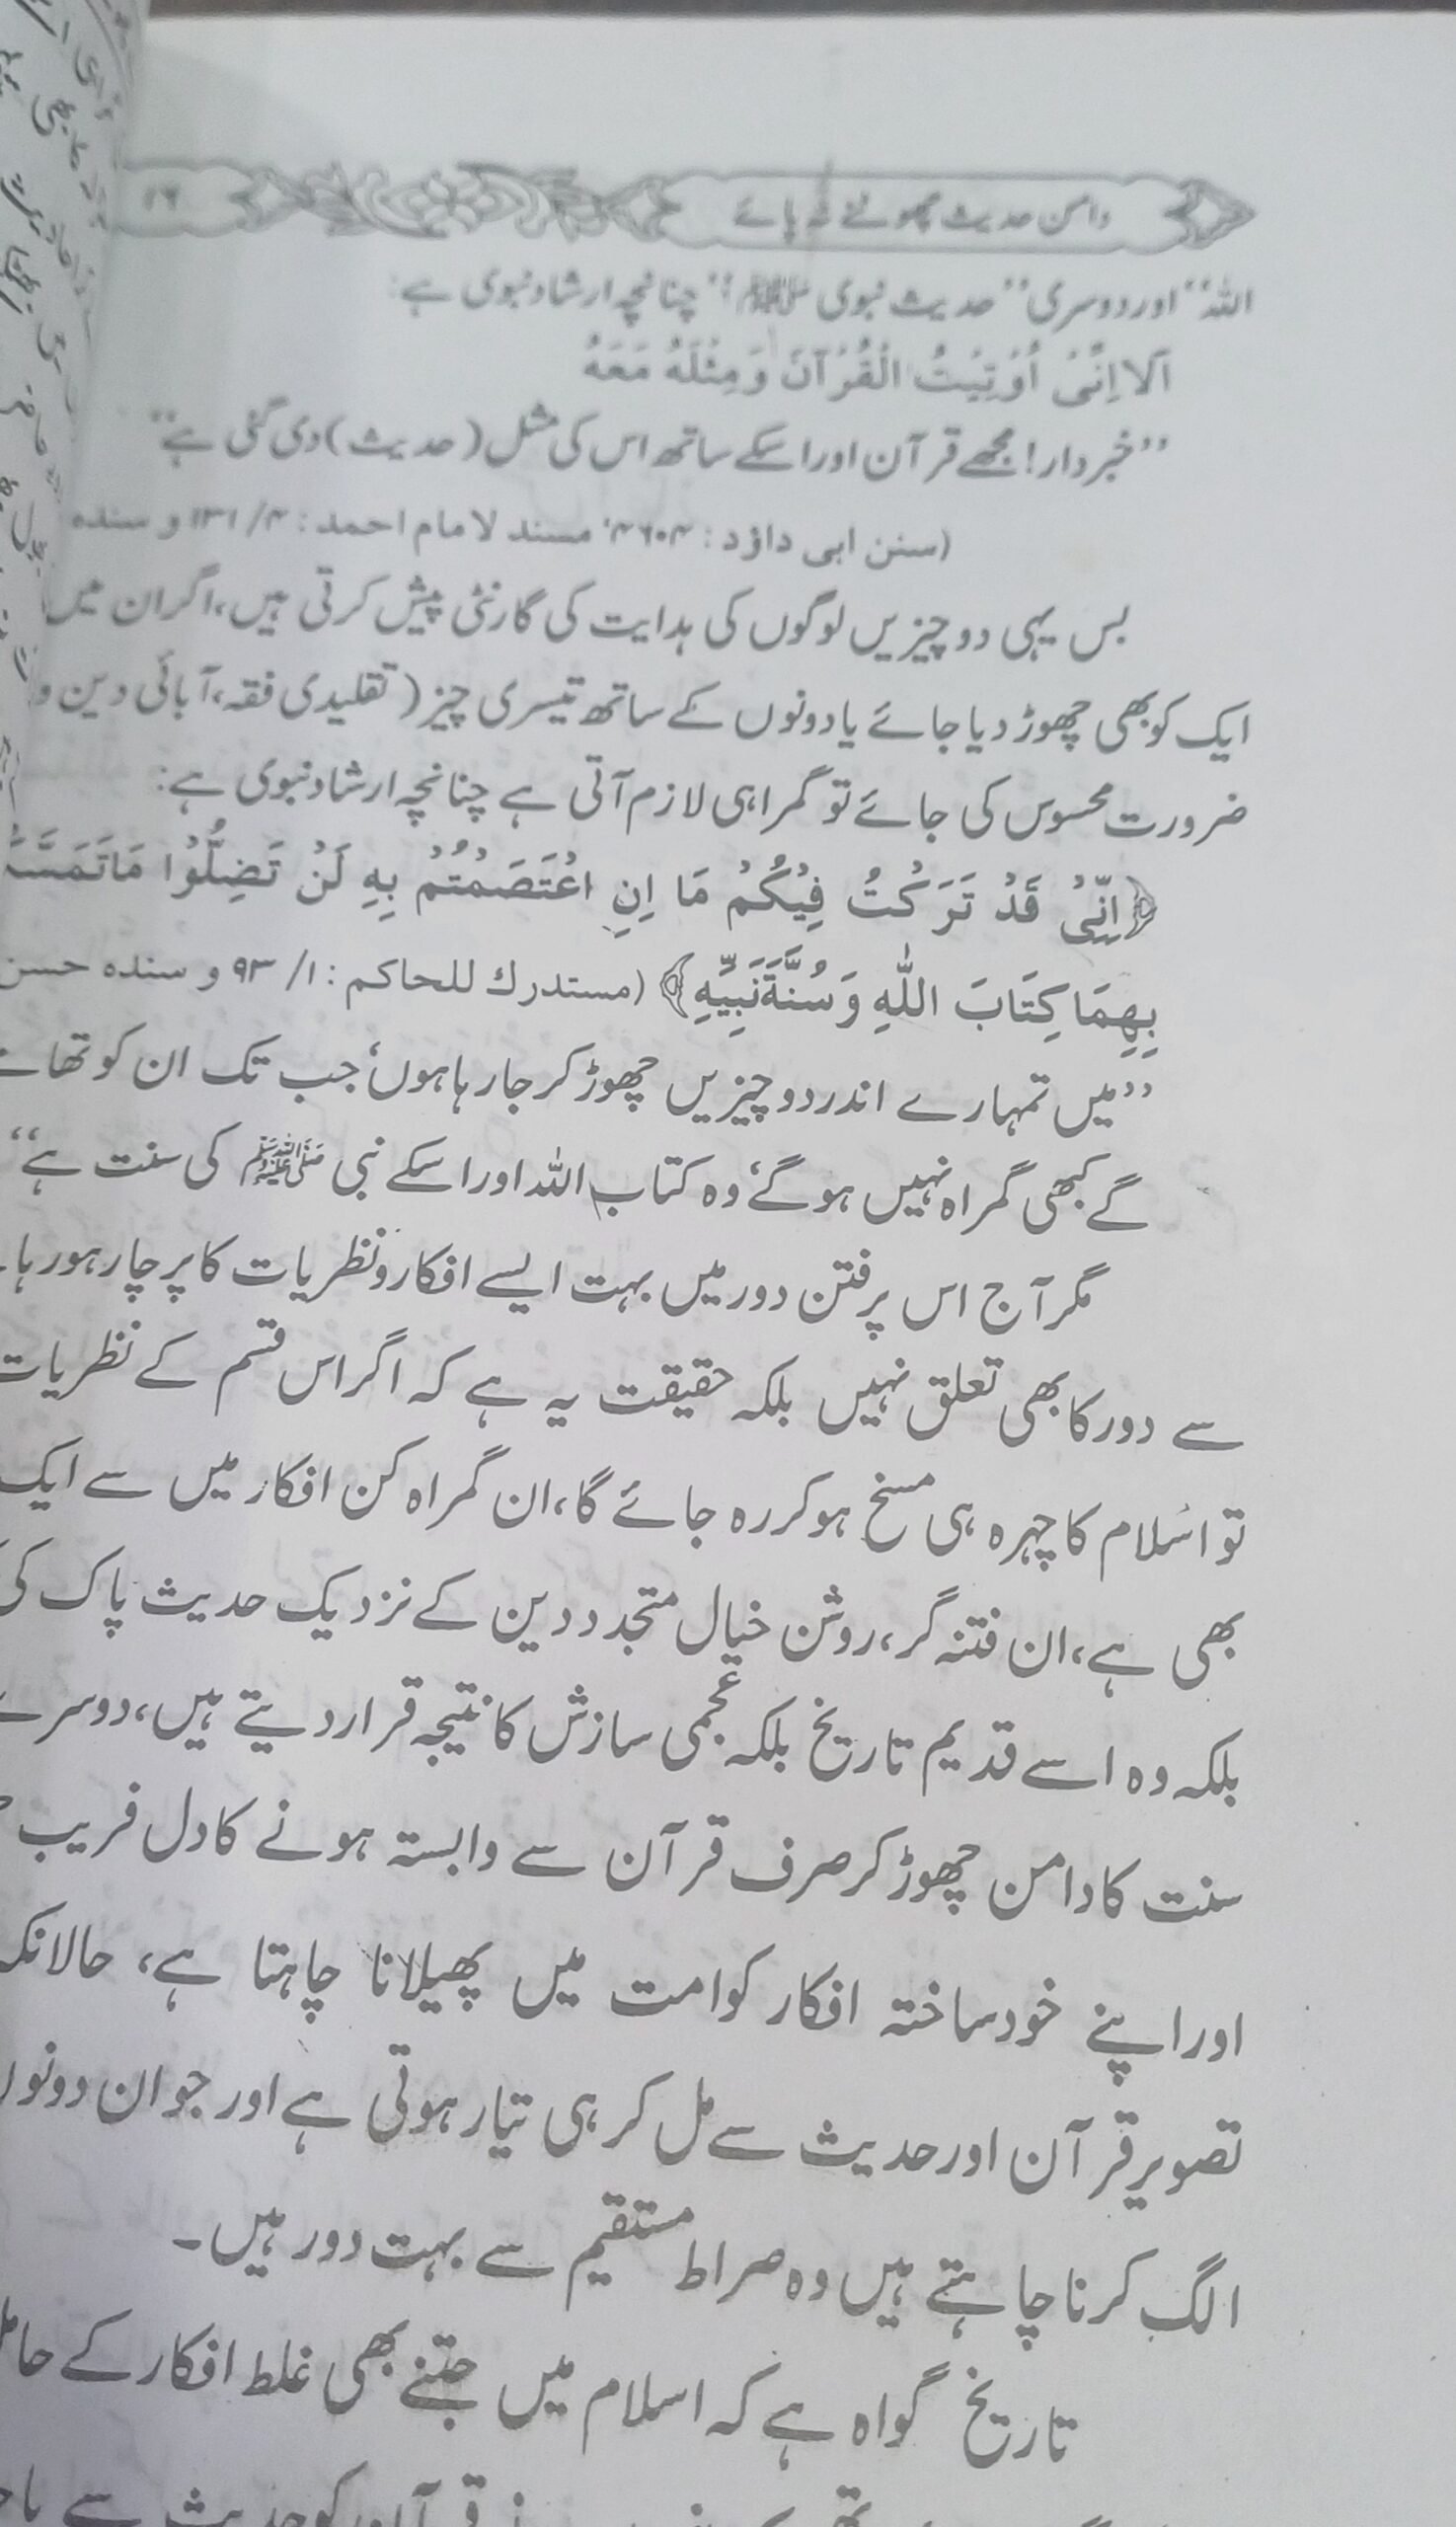 دامن حدیث چھوٹنے نہ پائے ۱۶
اللہ‘‘ اور دوسری ’’حدیث نبوی ﷺ‘‘ چنانچہ ارشاد نبوی ہے:
اَلَا اِنِّیْ اُوْتِیْتُ الْقُرْآنَ وَمِثْلَهُ مَعَهُ
’’خبردار! مجھے قرآن اور اسکے ساتھ اس کی مثل (حدیث) دی گئی ہے‘‘
(سنن ابی داؤد: ۴۶۰۴، مسند لامام احمد: ۴/ ۱۳۱ و سنده
بس یہی دو چیزیں لوگوں کی ہدایت کی گارنٹی پیش کرتی ہیں، اگر ان میں
ایک کو بھی چھوڑ دیا جائے یا دونوں کے ساتھ تیسری چیز (تقلیدی فقہ، آبائی دین و
ضرورت محسوس کی جائے تو گمراہی لازم آتی ہے چنانچہ ارشاد نبوی ہے:
﴿اِنِّیْ قَدْ تَرَکْتُ فِیْکُمْ مَا اِنِ اعْتَصَمْتُمْ بِهِ لَنْ تَضِلُّوْا مَا
بِهِمَا کِتَابَ اللّٰهِ وَ سُنَّةَ نَبِیِّهِ﴾ (مستدرك للحاكم: ۱/ ۹۳ و سنده حسن
’’میں تمہارے اندر دو چیزیں چھوڑ کر جا رہا ہوں، جب تک ان کو
گے کبھی گمراہ نہیں ہوگے، وہ کتاب اللہ اور اسکے نبی ﷺ کی سنت ہے‘‘
مگر آج اس پر فتن دور میں بہت ایسے افکار و نظریات کا پرچار ہو رہا
سے دور کا بھی تعلق نہیں بلکہ حقیقت یہ ہے کہ اگر اس قسم کے نظریات
تو اسلام کا چہرہ ہی مسخ ہو کر رہ جائے گا، ان گمراہ کن افکار میں سے ایک
بھی ہے، ان فتنہ گر، روشن خیال متجددین کے نزدیک حدیث پاک کی
بلکہ وہ اسے قدیم تاریخ بلکہ عجمی سازش کا نتیجہ قرار دیتے ہیں، دوسرے
سنت کا دامن چھوڑ کر صرف قرآن سے وابستہ ہونے کا دل فریب
اور اپنے خود ساختہ افکار کو امت میں پھیلانا چاہتا ہے، حالانکہ
تصویر قرآن اور حدیث سے مل کر ہی تیار ہوتی ہے اور جو ان دونوں
الگ کرنا چاہتے ہیں وہ صراط مستقیم سے بہت دور ہیں۔
تاریخ گواہ ہے کہ اسلام میں جتنے بھی غلط افکار کے حامل